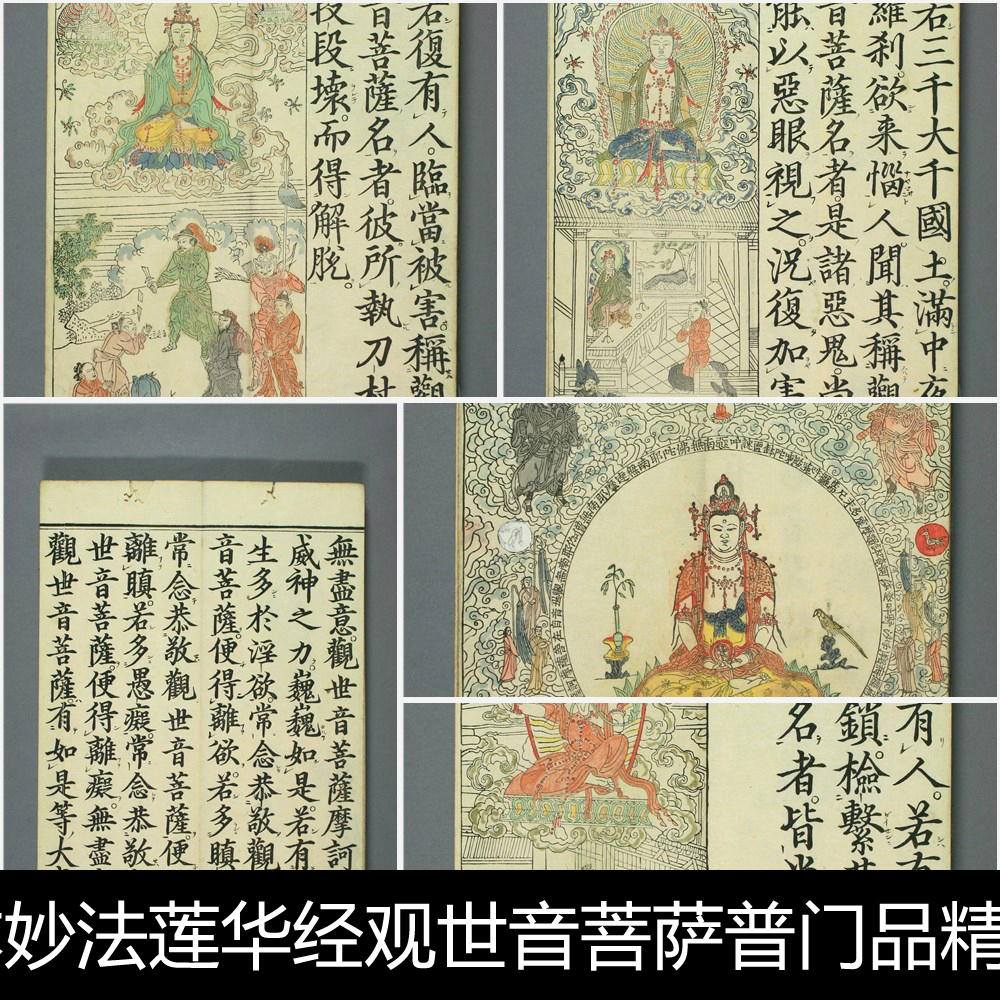 若復有人。臨當被害。稱觀
音菩薩名者。彼所執刀杖
段段壞。而得解脫。
若三千大千國土。滿中夜
羅刹。欲来惱人。聞其稱觀
音菩薩名者。是諸惡鬼。尚
能以惡眼視之。況復加害
無盡意。觀世音菩薩摩訶
威神之力。巍巍如是。若有
生多於淫欲。常念恭敬觀
音菩薩。便得離欲。若多瞋
常念恭敬觀世音菩薩。便
離瞋。若多愚癡。常念恭敬
世音菩薩。便得離癡。無盡
觀世音菩薩。有如是等大
有人。若有
鎖。檢繫其
名者。皆
妙法莲华经观世音菩萨普门品精